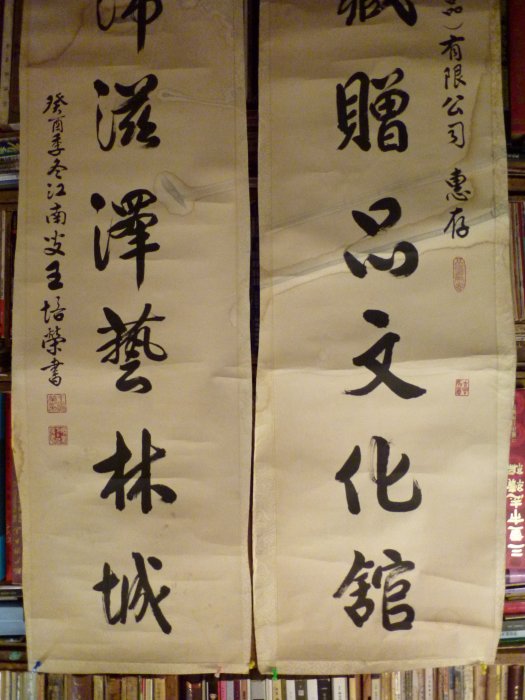 品）有限公司 惠存
藏贈品文化館
沛滋澤藝林城
癸酉季冬江南叟王培榮書